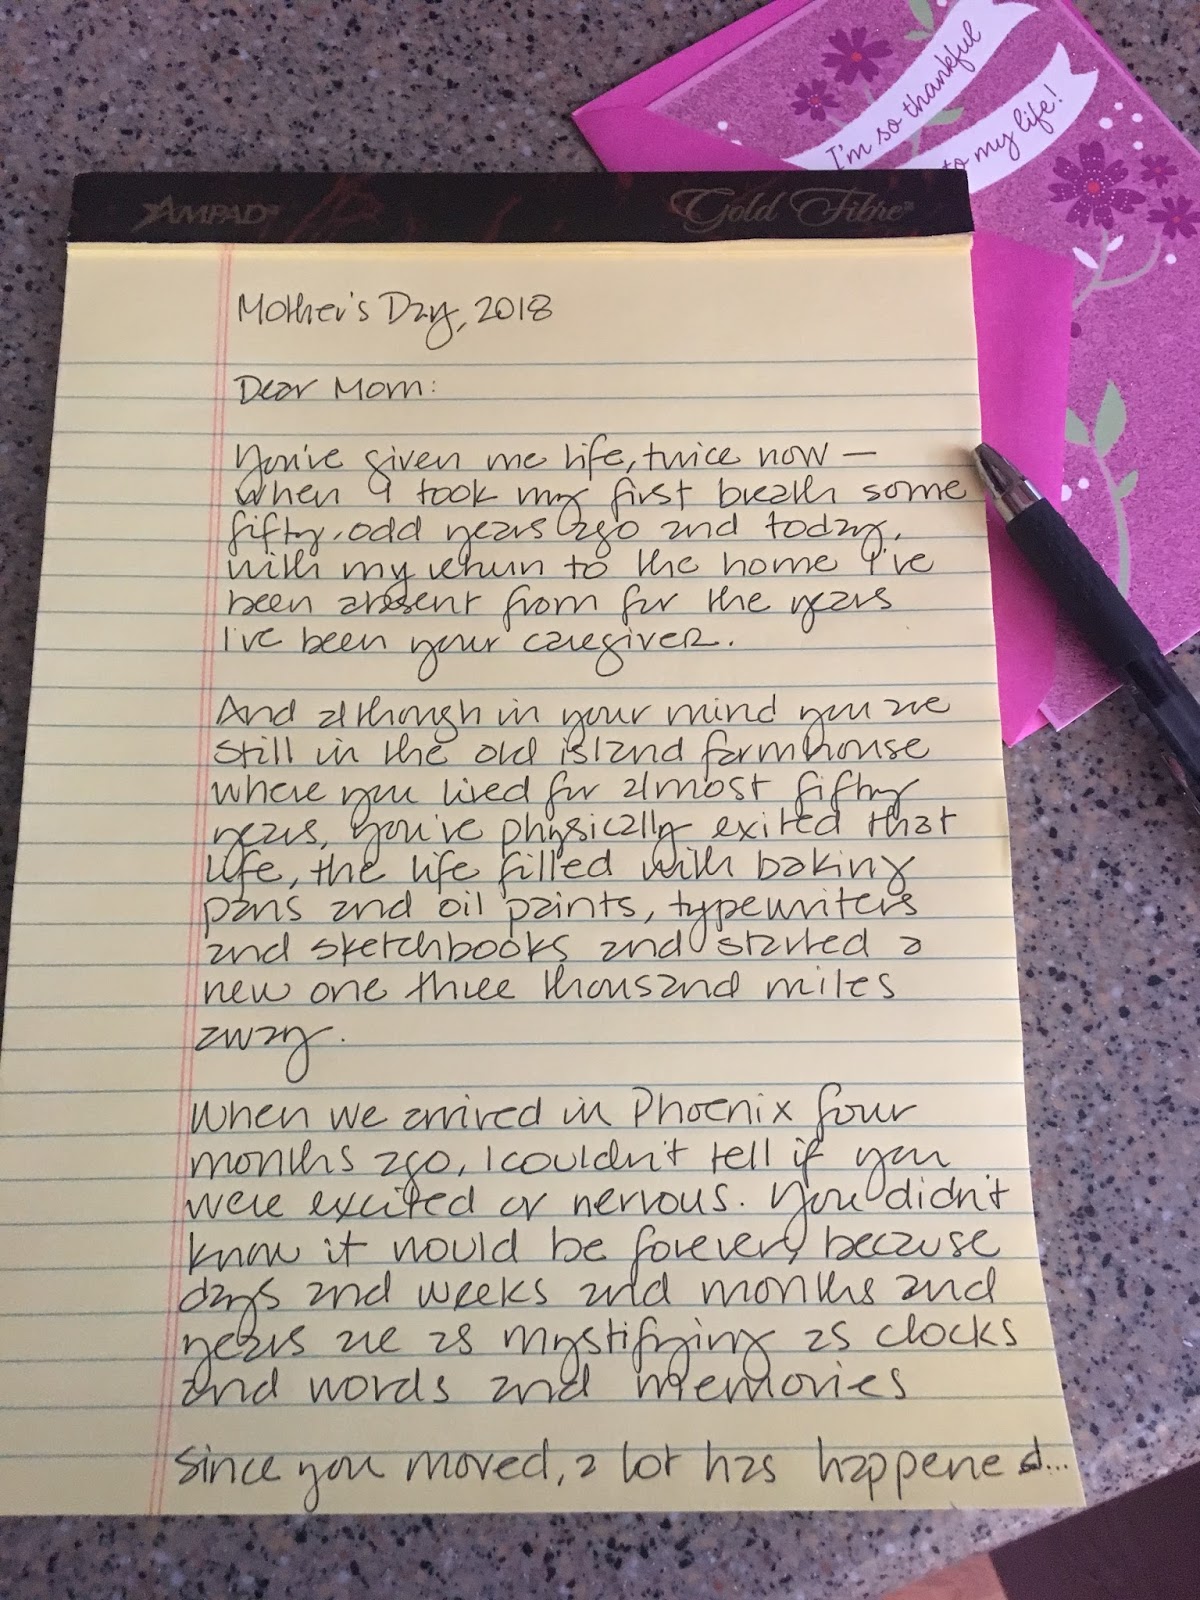 I'm so thankful
to my life!
AMPAD
Gold Fibre
Mother's Day, 2018
Dear Mom:
You've given me life, twice now —
when I took my first breath some
fifty-odd years ago and today,
with my return to the home I've
been absent from for the years
I've been your caregiver.
And although in your mind you are
still in the old island farmhouse
where you lived for almost fifty
years, you've physically exited that
life, the life filled with baking
pans and oil paints, typewriters
and sketchbooks and started a
new one three thousand miles
away.
When we arrived in Phoenix four
months ago, I couldn't tell if you
were excited or nervous. You didn't
know it would be forever, because
days and weeks and months and
years are as mystifying as clocks
and words and memories
Since you moved, a lot has happened...